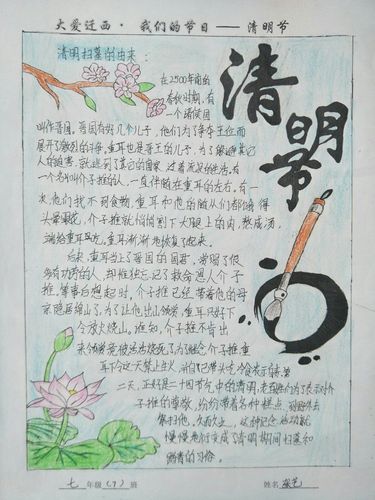 大爱迁西·我们的节目——清明节
清明扫墓的由来：
清明节
在2500年前的
春秋时期，有
一个诸侯国
叫作晋国。晋国有好几个儿子，他们为了争夺王位而
展开了激烈的斗争，重耳也是晋王的儿子，为了躲避其它
人的追害，就逃到了其它的国家，过着流浪的生活。有
一个名叫介子推的人，一直伴随在重耳的左右。有一
次，他们找不到食物，重耳和他的随从们都饿得
头晕眼花，介子推就悄悄割下大腿上的肉，熬成汤，
端给重耳吃，重耳渐渐地恢复了起来。
后来，重耳当上了晋国的国君，赏赐了很
多有功劳的人，却惟独忘记了救命恩人介子
推，等事后想起时，介子推已经带着他的母
亲隐居绵山了，为了让他出山领赏，重耳只好下
令放火烧山，谁知，介子推不肯出
来领赏竟被活活烧死了，为了纪念介子推，重
耳下令这一天禁止生火，并
第
二天，正好是二十四节气中的清明，老百姓们为了表示对介
子推的尊敬，纷纷带着各种糕点，到
祭扫他，久而久之，这种纪念
慢慢地演变成了清明期间扫墓和
踏青的习俗。
七年级（7）班
姓名：